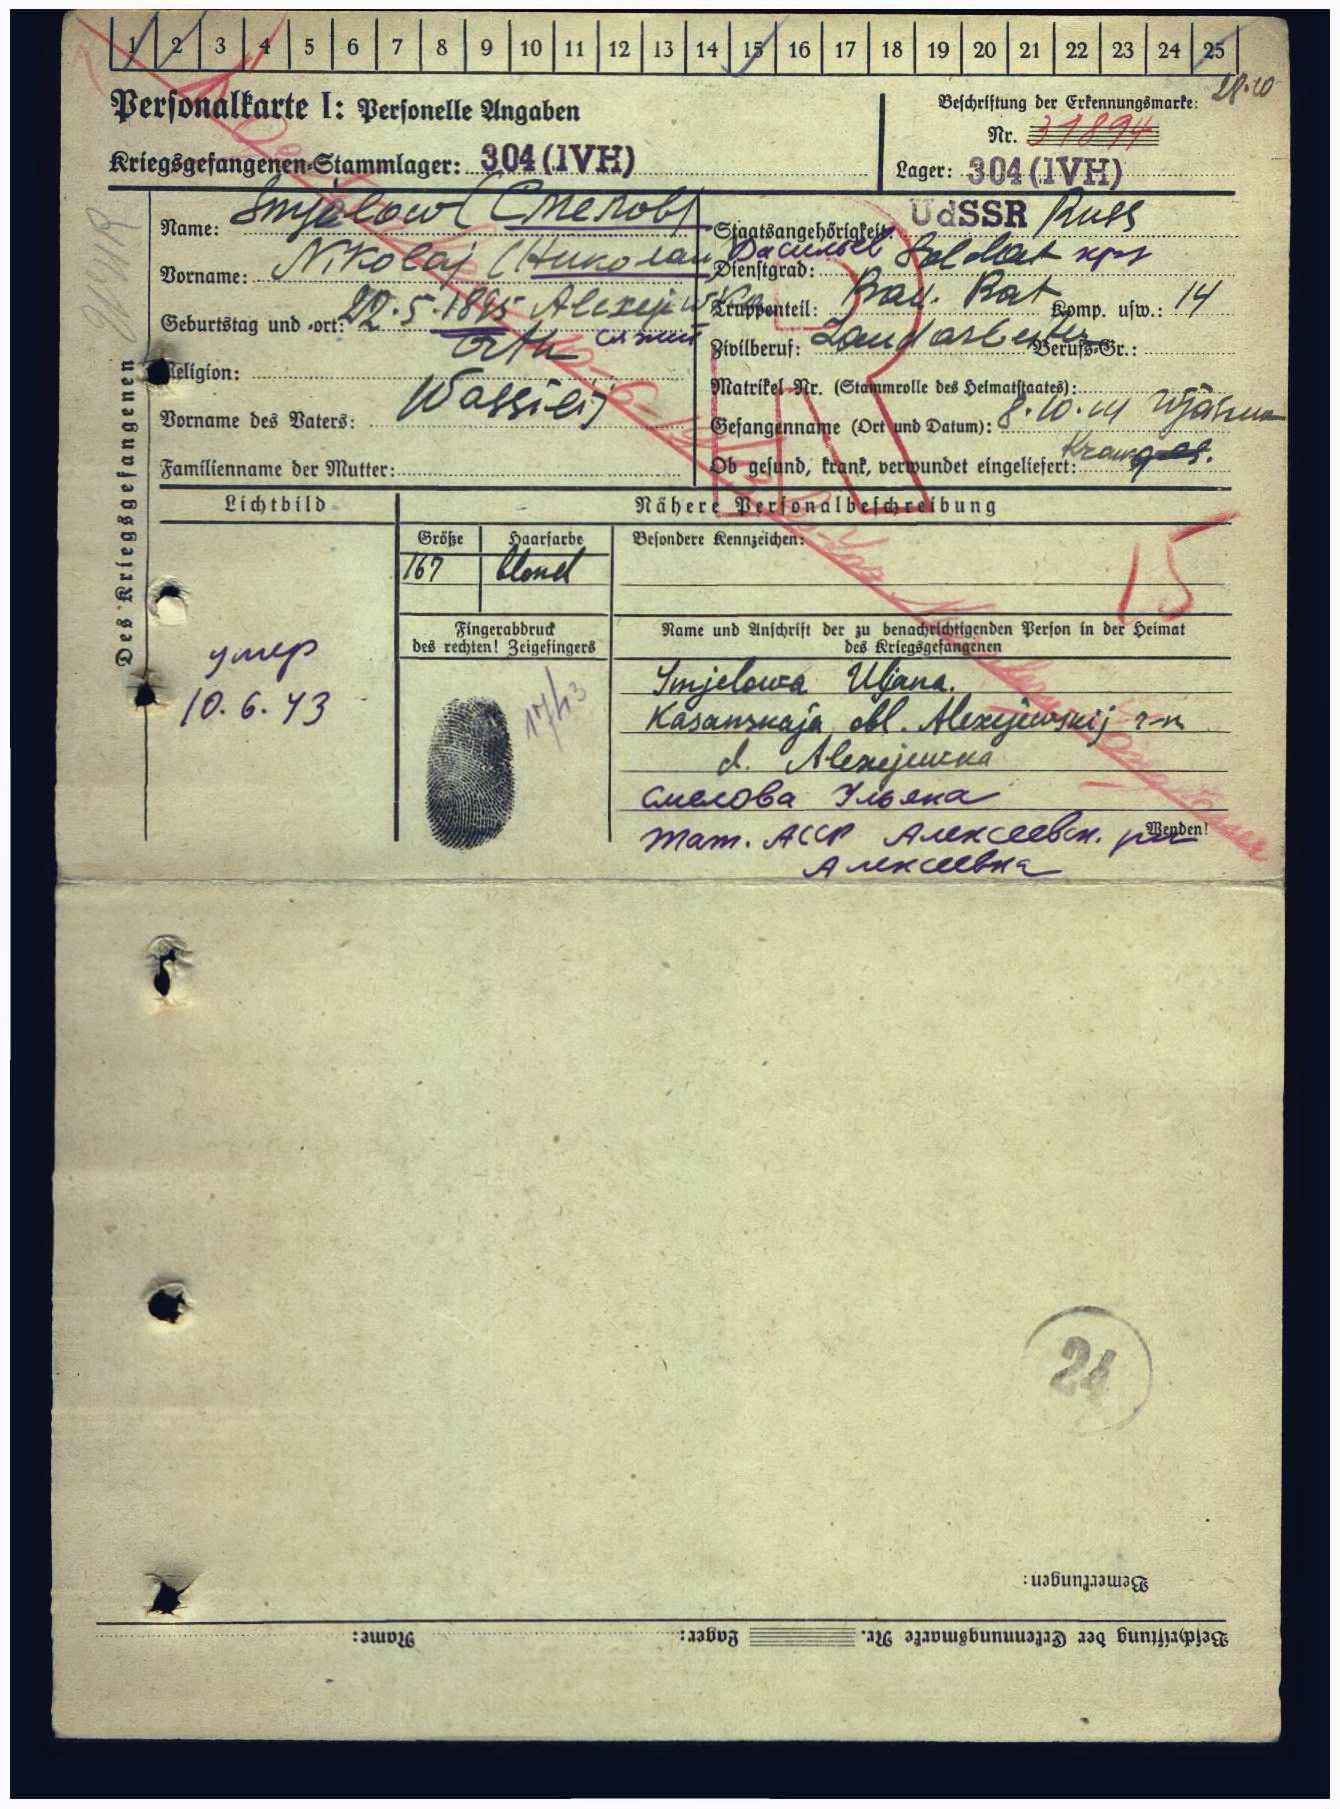 1 2 3 4 5 6 7 8 9 10 11 12 13 14 15 16 17 18 19 20 21 22 23 24 25
28.10
Personalkarte I: Personelle Angaben
Beschriftung der Erkennungsmarke:
Nr. 31894
Kriegsgefangenen-Stammlager: 304 (IVH)
Lager: 304 (IVH)
Des Kriegsgefangenen
Name: Smjelow (Смелов)
Staatsangehörigkeit: UdSSR Russ
Vorname: Nikolaj (Николай Васильев
Dienstgrad: Soldat кр
Geburtstag und -ort: 22.5.1895 Alexejewka
Truppenteil: Bau. Bat Komp. usw.: 14
Religion: Orth
Zivilberuf: Landarbeiter Berufs-Gr.:
Matrikel Nr. (Stammrolle des Heimatstaates):
Vorname des Vaters: Wassilij
Gefangenname (Ort und Datum): 8.10.41 Wjäsma
Familienname der Mutter:
Ob gesund, krank, verwundet eingeliefert:
Lichtbild
Nähere Personalbeschreibung
Größe Haarfarbe Besondere Kennzeichen:
167 blond
15
Fingerabdruck
des rechten! Zeigefingers
Name und Anschrift der zu benachrichtigenden Person in der Heimat
des Kriegsgefangenen
умер
10.6.43
Smjelowa Uljana.
Kasanskaja obl. Alexejewskij r-n
d. Alexejewka
Смелова Ульяна
Тат. АССР Алексеевск. р-н
Wenden!
Алексеевка
24
Bemerkungen:
Beschriftung der Erkennungsmarke Nr. Lager: Name: